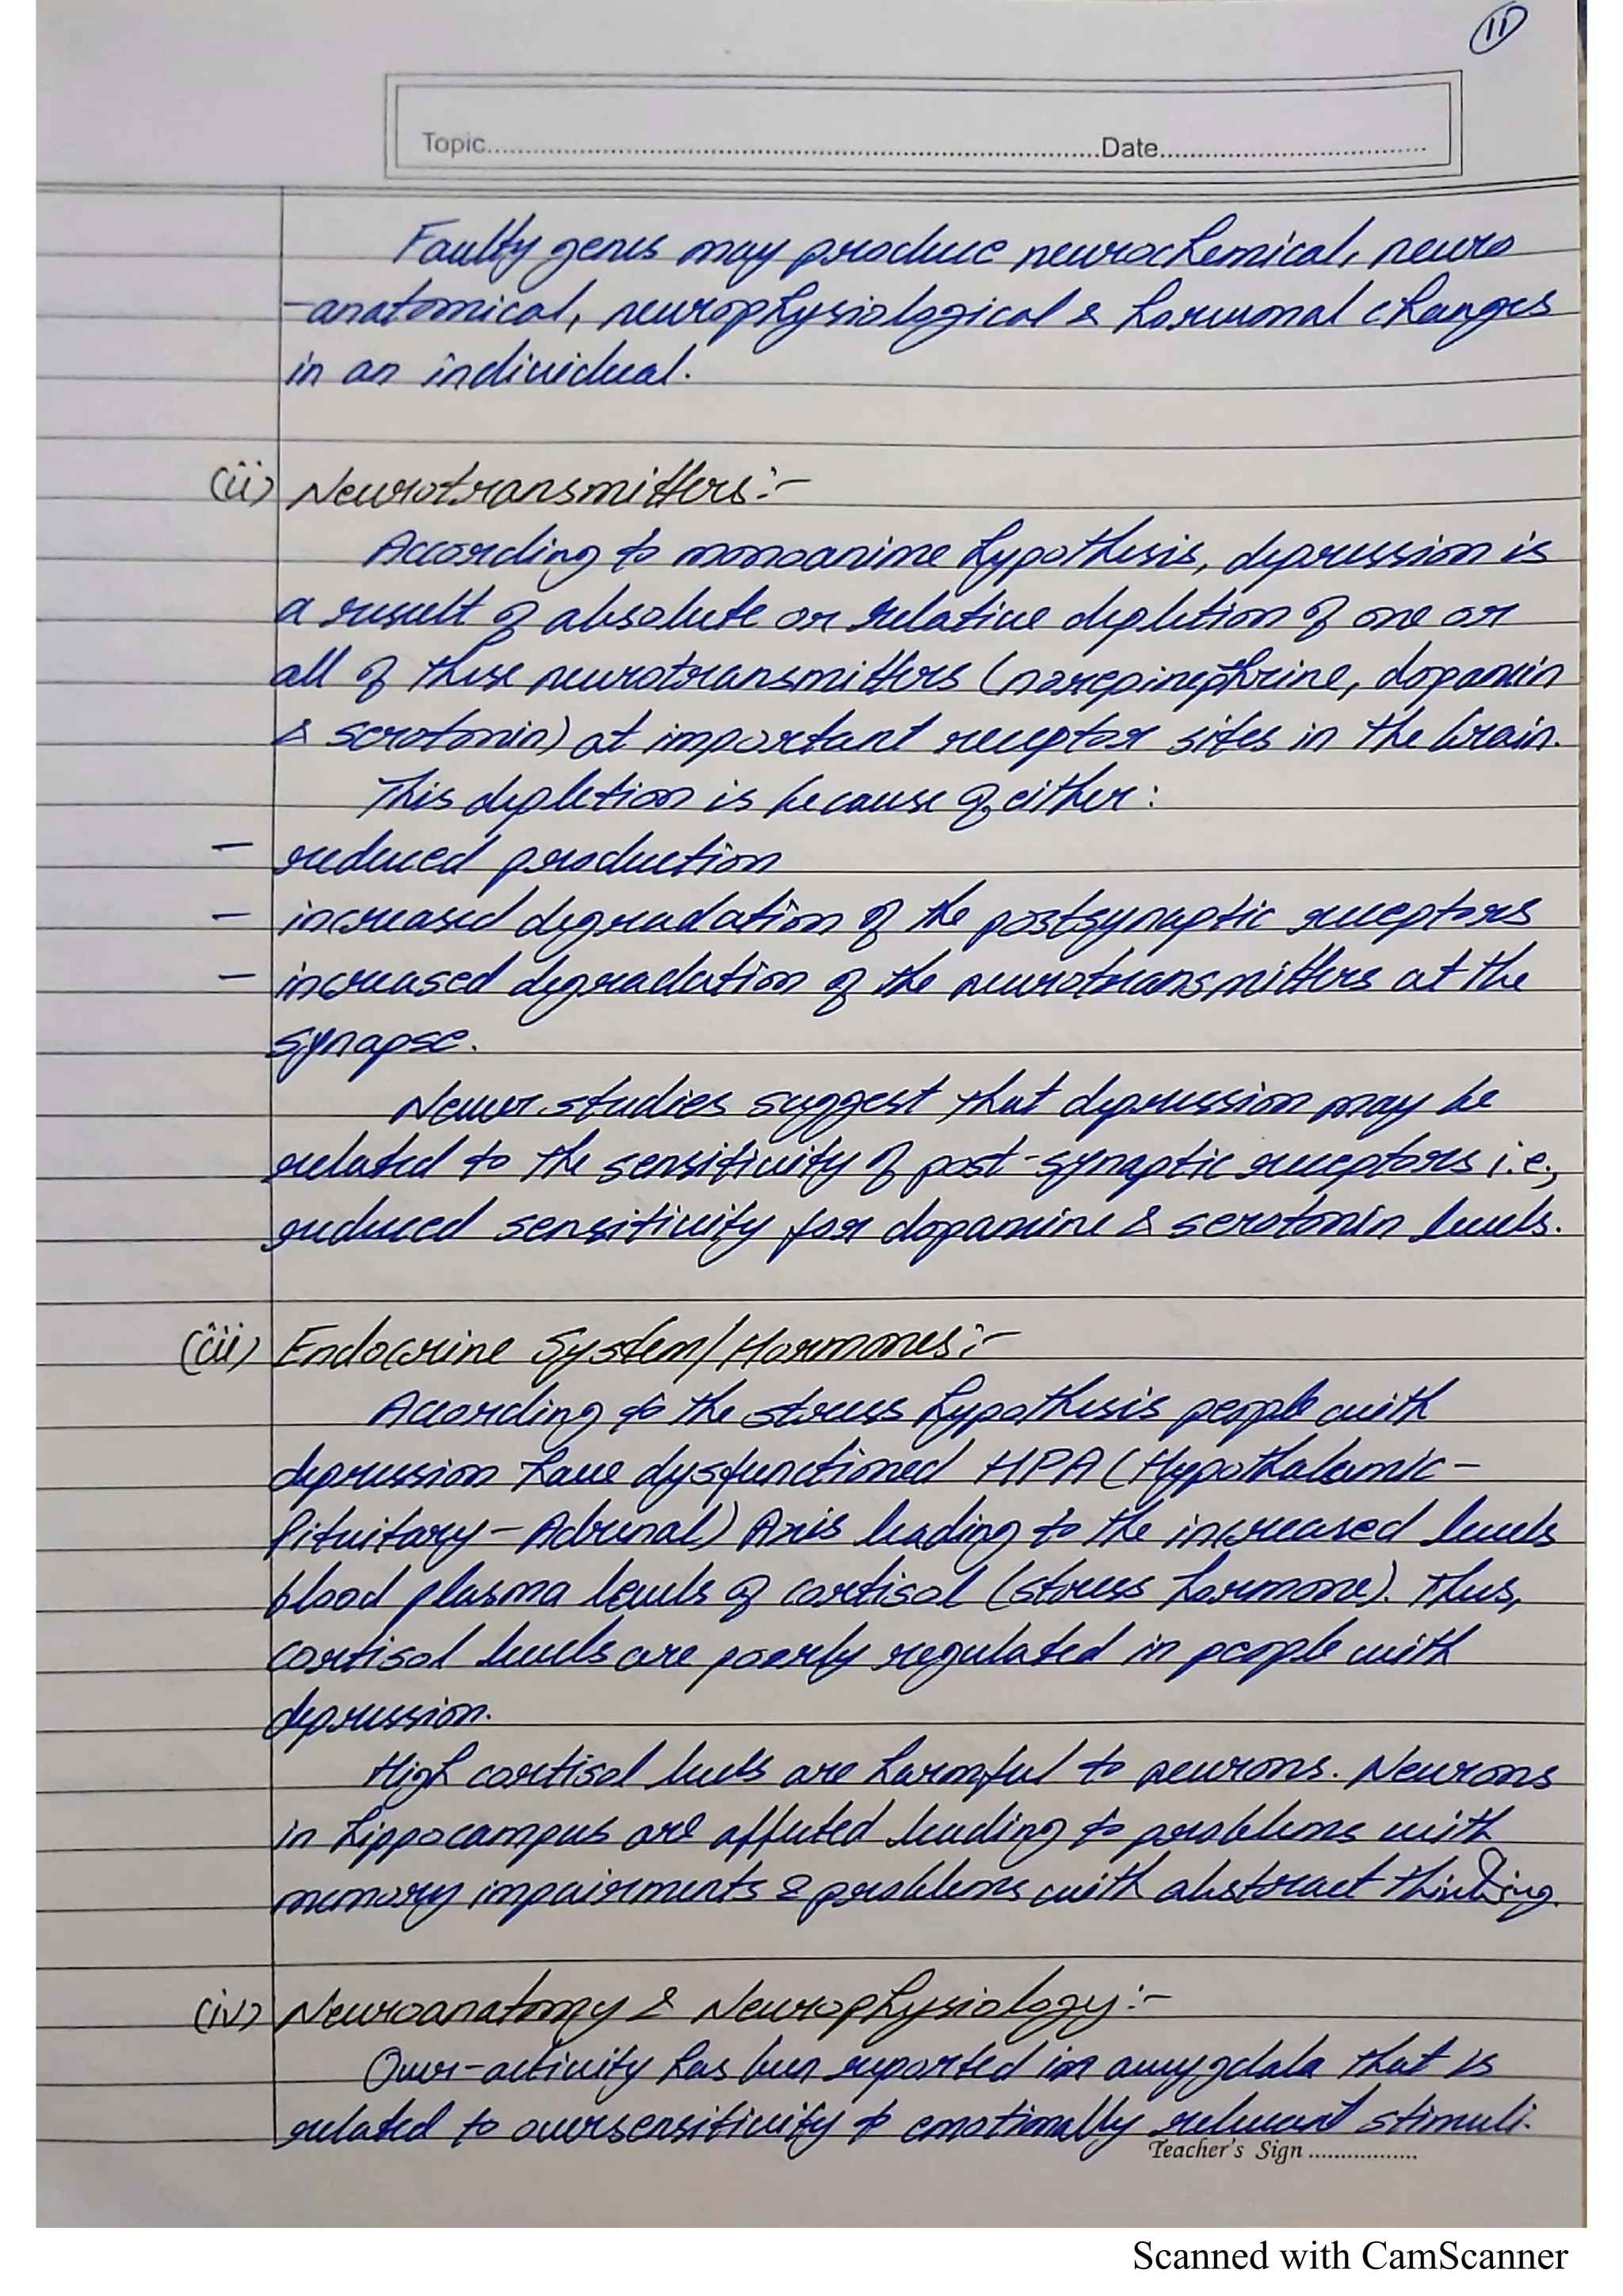 11
Topic..........Date..........
Faulty genes may produce neurochemical, neuro
-anatomical, neurophysiological & hormonal changes
in an individual.
(ii) Neurotransmitters:-
According to monoanime hypothesis, depression is
a result of absolute or relative depletion of one or
all of these neurotransmitters (norepinephrine, dopamin
& serotonin) at important receptor sites in the brain.
This depletion is because of either:
- reduced production
- increased degradation of the postsynaptic receptors
- increased degradation of the neurotransmitters at the
synapse.
Newer studies suggest that depression may be
related to the sensitivity of post-synaptic receptors i.e.,
reduced sensitivity for dopamine & serotonin levels.
(iii) Endocrine System/Hormones:-
According to the stress hypothesis people with
depression have dysfunctioned HPA (Hypothalamic-
Pituitary-Adrenal) Axis leading to the increased levels
blood plasma levels of cortisol (stress hormone). Thus,
cortisol levels are poorly regulated in people with
depression.
High cortisol levels are harmful to neurons. Neurons
in hippocampus are affected leading to problems with
memory impairments & problems with abstract thinking.
(iv) Neuroanatomy & Neurophysiology:-
Over-activity has been reported in amygdala that is
related to oversensitivity to emotionally relevant stimuli.
Teacher's Sign ..................
Scanned with CamScanner